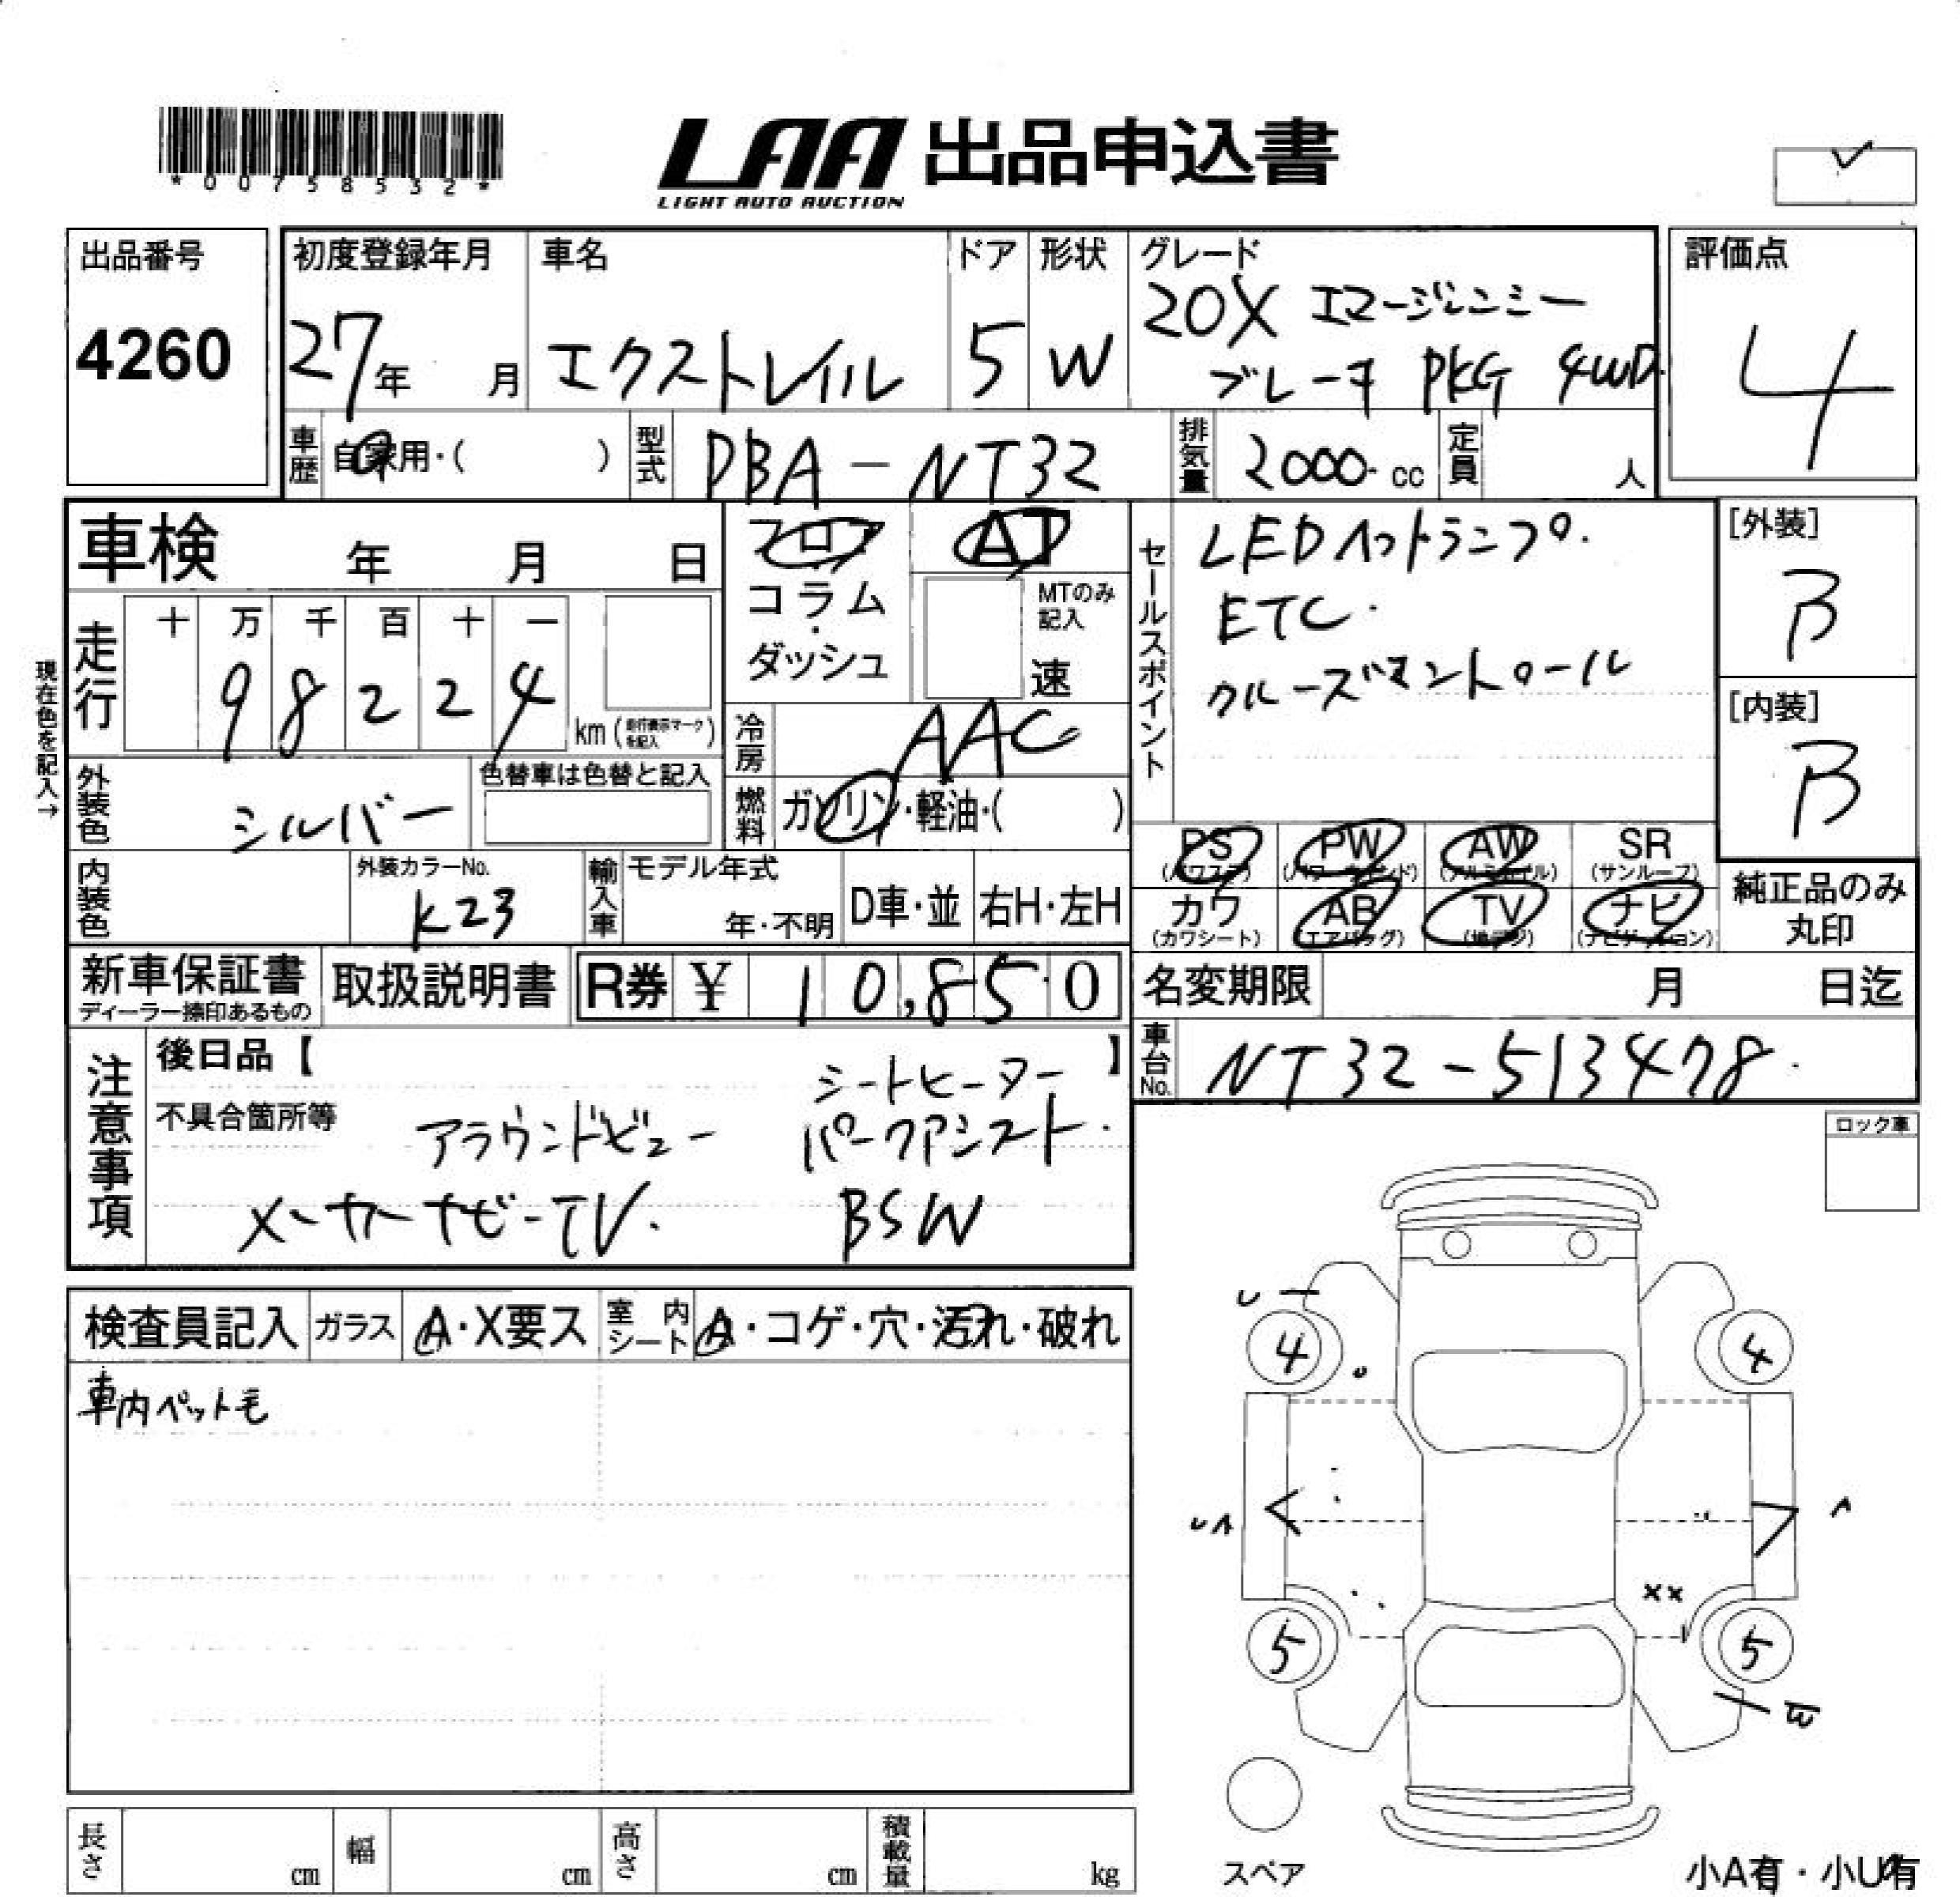 *00758532*
LAA 出品申込書
LIGHT AUTO AUCTION
出品番号
4260
初度登録年月
27年 月
車名
エクストレイル
ドア
5
形状
W
グレード
20X エマージェンシー
ブレーキ PKG 4WD
評価点
4
車歴 自家用・( )
型式 DBA-NT32
排気量 2000 cc
定員 人
車検 年 月 日
フロア
コラム
・
ダッシュ
AT
MTのみ
記入
速
セールスポイント
LEDヘットランプ.
ETC.
クルーズコントロール
[外装]
B
[内装]
B
現在色を記入→
走行
十 万 千 百 十 一
9 8 2 2 4
km (走行表示マークを記入)
冷房 AAC
外装色 シルバー
色替車は色替と記入
燃料 ガソリン・軽油・( )
内装色
外装カラーNo.
K23
輸入車
モデル年式
年・不明
D車・並
右H・左H
PS (パワステ)
PW (パワーウインド)
AW (アルミホイル)
SR (サンルーフ)
カワ (カワシート)
AB (エアバッグ)
TV (地デジ)
ナビ (ナビゲーション)
純正品のみ
丸印
新車保証書
ディーラー捺印あるもの
取扱説明書
R券 ¥ 10,850
名変期限 月 日迄
車台No. NT32-513478.
注意事項
後日品【 】
シートヒーター
不具合箇所等
アラウンドビュー パークアシスト.
メーカーナビ-TV. BSW
ロック車
検査員記入 ガラス A・X要ス 室内シート A・コゲ・穴・汚れ・破れ
車内ペット毛
4 4
5 5
スペア
小A有・小U有
長さ cm
幅 cm
高さ cm
積載量 kg